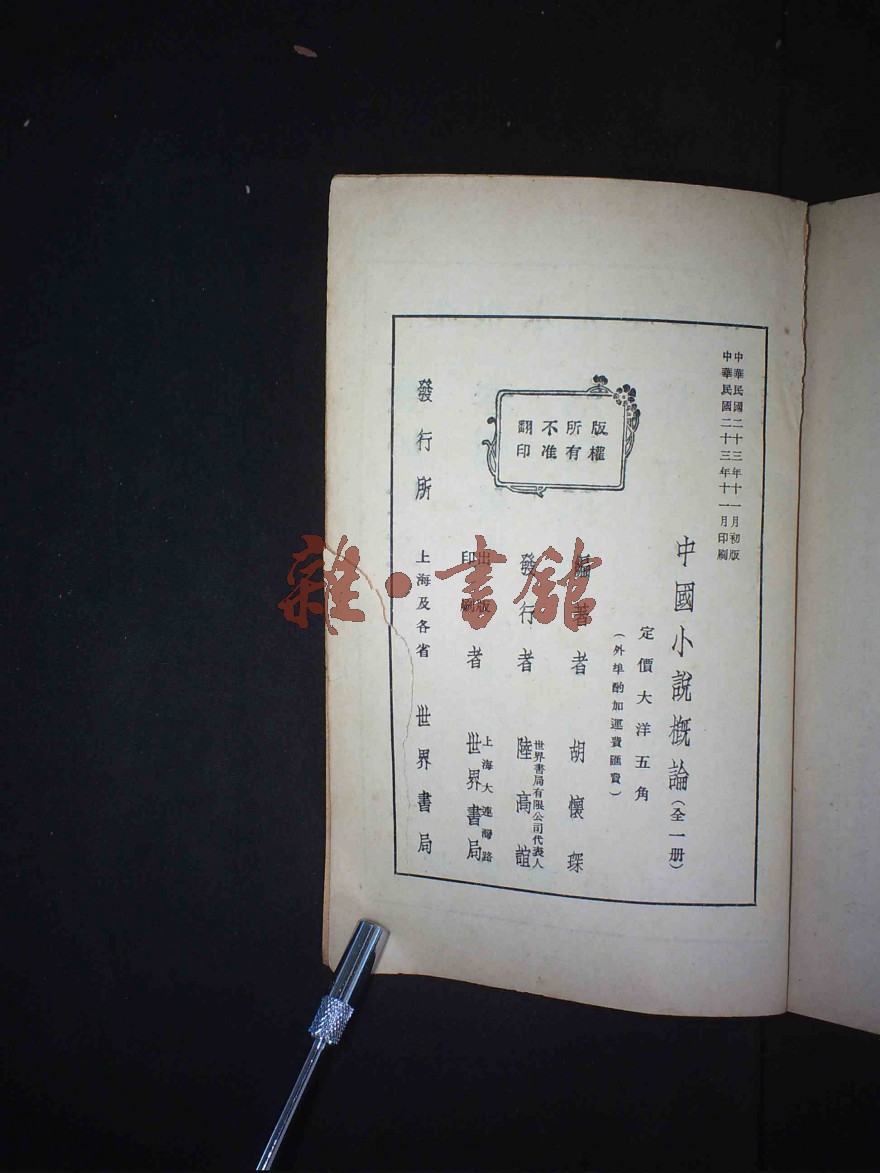 中華民國二十三年十一月初版
中華民國二十三年十一月印刷
中國小說概論(全一册)
定價大洋五角
(外埠酌加運費匯費)
版權
所有
不准
翻印
編著者 胡懷琛
發行者 世界書局有限公司代表人 陸高誼
出版印刷者 上海大連灣路 世界書局
發行所 上海及各省 世界書局
雜·書館